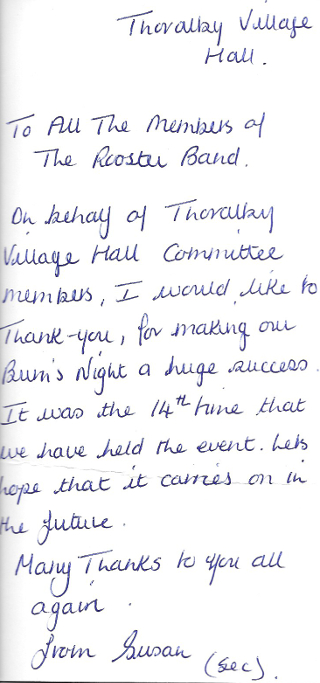 Thoralby Village
Hall.
To All The Members of
The Rooster Band.
On behalf of Thoralby
Village Hall Committee
members, I would like to
Thank-you, for making our
Burn's Night a huge success.
It was the 14th time that
we have held the event. Lets
hope that it carries on in
the future.
Many Thanks to you all
again.
from Susan (sec).